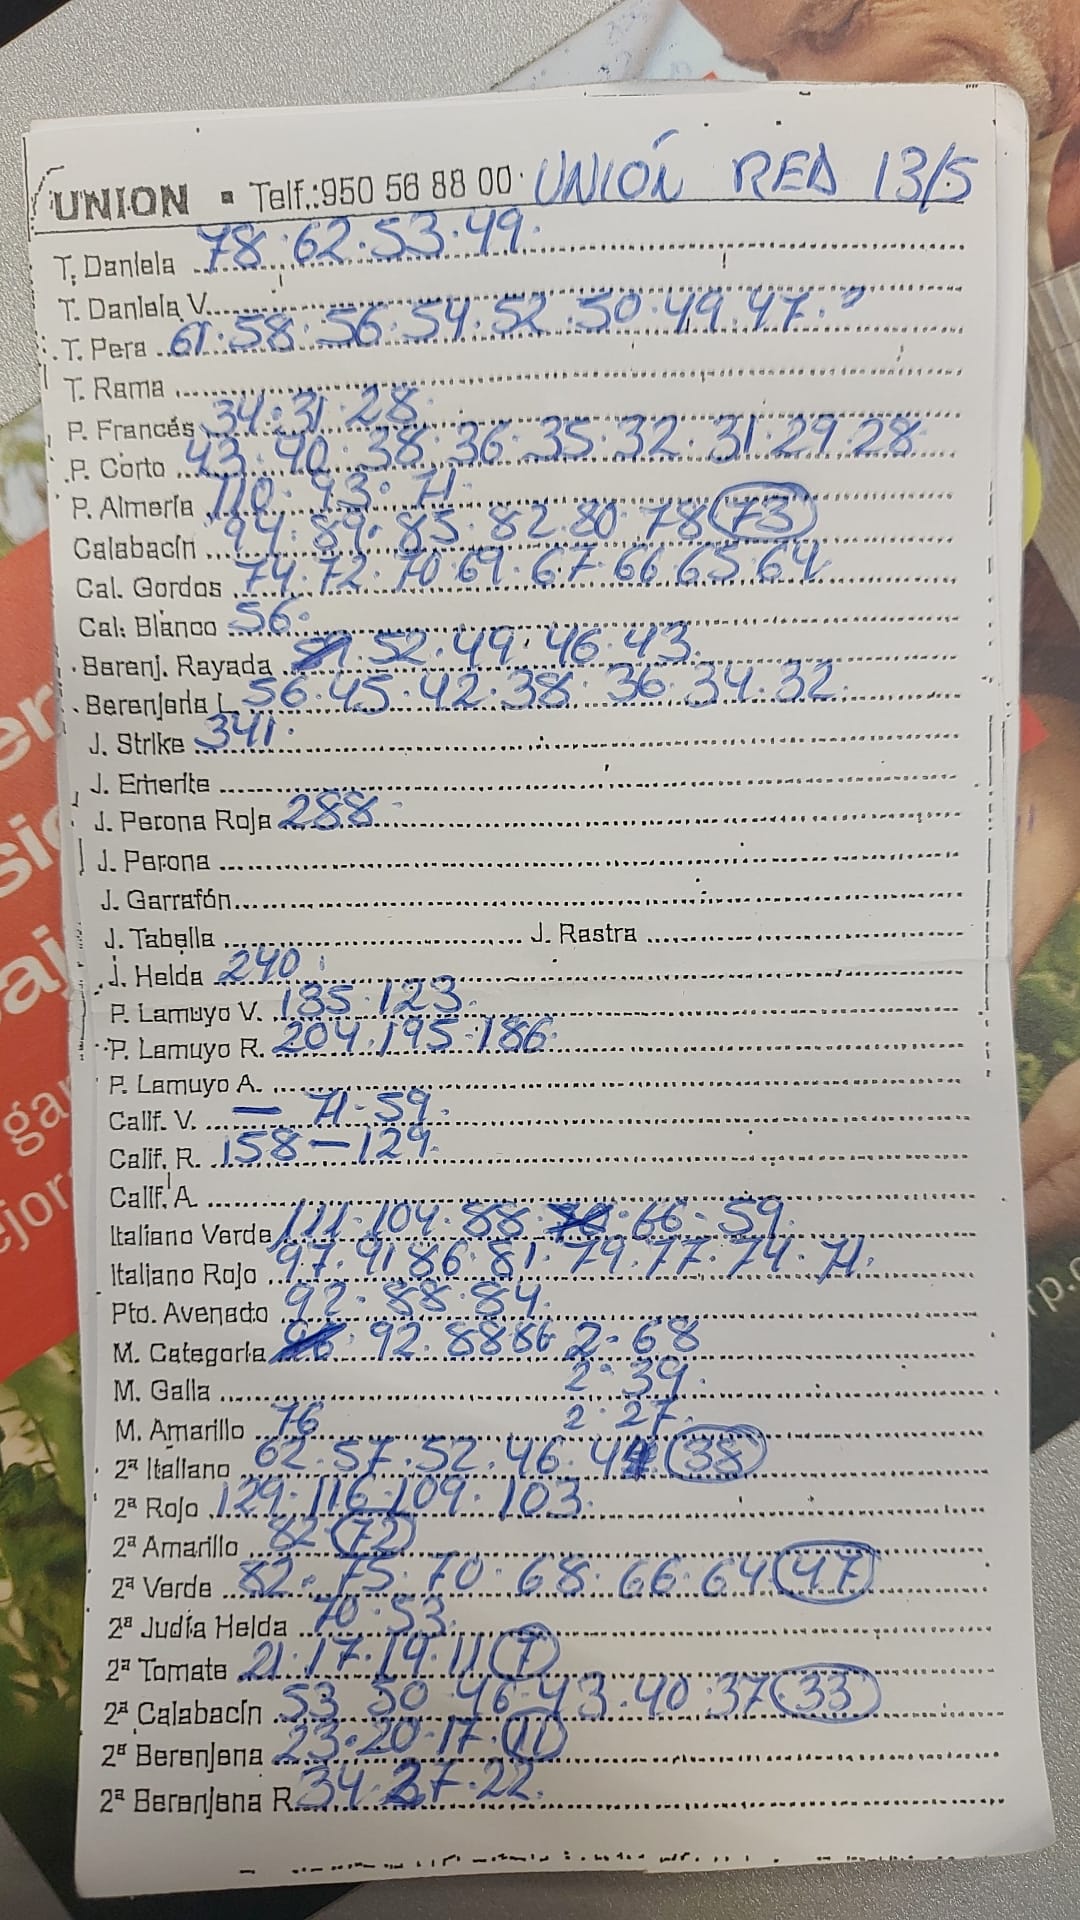 UNION - Telf.:950 56 88 00 UNIÓN RED 13/5
T. Daniela 78.62.53.49.
T. Daniela V.
T. Pera 61.58.56.54.52.50.49.47.
T. Rama
P. Francés 34.31.28.
P. Corto 43.40.38.36.35.32.31.29.28.
P. Almería 110.93.71.
Calabacín 94.89.85.82.80.78 73
Cal. Gordos 74.72.70.69.67.66 65.64
Cal. Blanco 56.
Berenj. Rayada 52.49.46.43.
Berenjena L. 56.45.42.38.36.34.32.
J. Strike 341.
J. Emerite
J. Perona Roja 288
J. Perona
J. Garrafón
J. Tabella J. Rastra
J. Helda 240
P. Lamuyo V. 135.123.
P. Lamuyo R. 204.195.186.
P. Lamuyo A.
Calif. V. — 71-59.
Calif. R. 158-129.
Calif. A.
Italiano Verde 111.104.88.66.59.
Italiano Rojo 97.91 86.81.79.77.74.71.
Pto. Avenado 92.88.84.
M. Categoría 92.88 86 2-68
M. Galia 2-39.
M. Amarillo 76 2-27.
2ª Italiano 62.57.52.46.44 38
2ª Rojo 129.116.109.103.
2ª Amarillo 82 72
2ª Verde 82.75.70.68.66.64 47
2ª Judía Helda 70.53.
2ª Tomate 21.17.14.11 7
2ª Calabacín 53 50 46.43.40.37 33
2ª Berenjena 23.20.17. 11
2ª Berenjena R. 34.27.22.